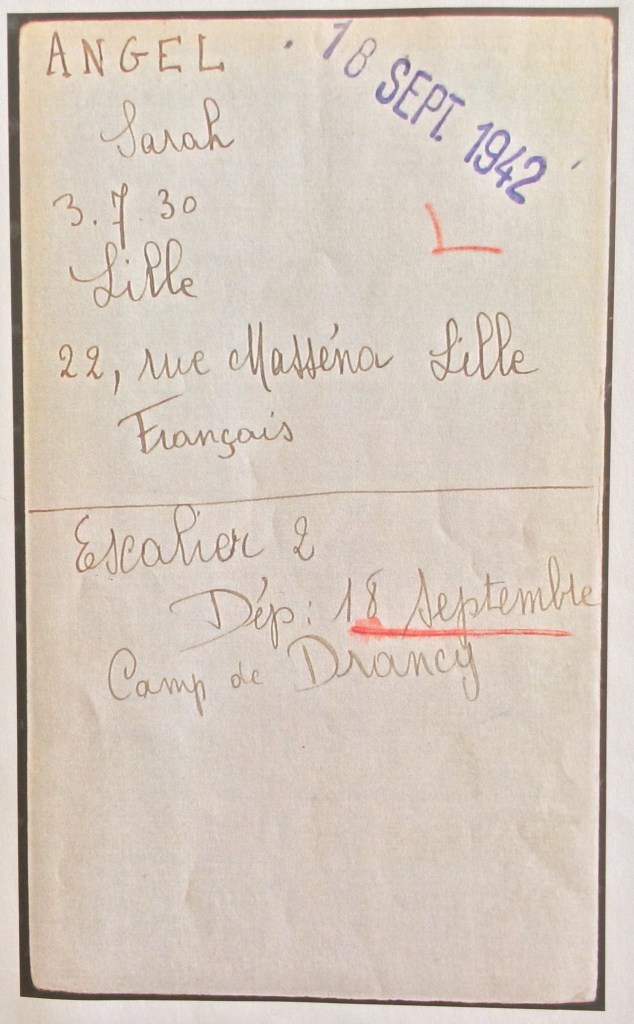 ANGEL
18 SEPT. 1942
Sarah
3.7.30
Lille
22, rue Masséna Lille
Français
Escalier 2
Dép: 18 Septembre
Camp de Drancy